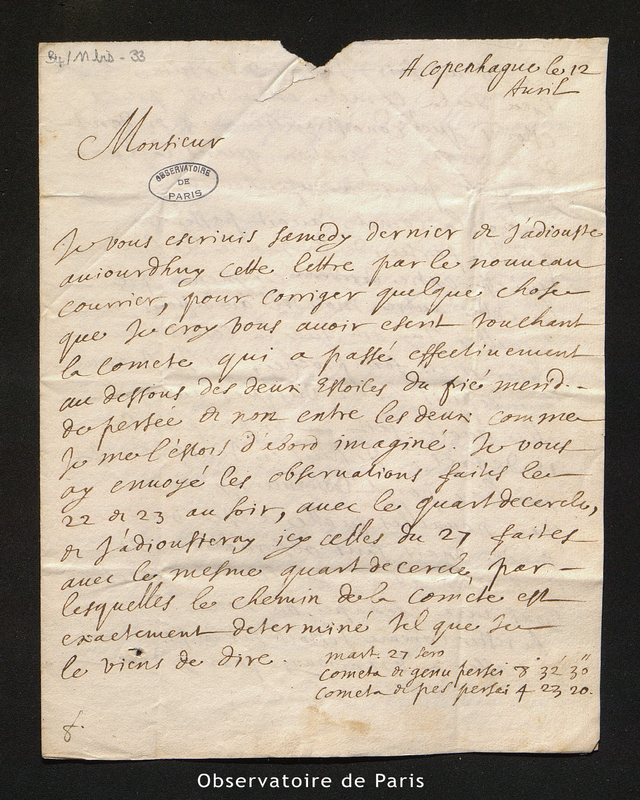 B4/11 bis - 33
A Copenhague le 12
Avril
Monsieur
OBSERVATOIRE
DE
PARIS
Je vous escrivis samedy dernier & j'adiouste
auiourdhuy cette lettre par le nouveau
courrier, pour corriger quelque chose
que Je croy vous avoir escrit touchant
la comete qui a passé effectivement
au dessous des deux Estoiles du pié merid.-
de persée & non entre les deux comme
Je me l'éstois d'abord imaginé. Je vous
ay envoyé les observations faites le
22 & 23 au soir, avec le quart de cercle,
& J'adiousteray icy celles du 27 faites
avec le mesme quart de cercle, par -
lesquelles le chemin de la comete est
exactement determiné tel que Je
le viens de dire.
mart. 27 sero
cometa & genu persei 8 32' 30"
cometa & pes persei 4 23 20.
Observatoire de Paris